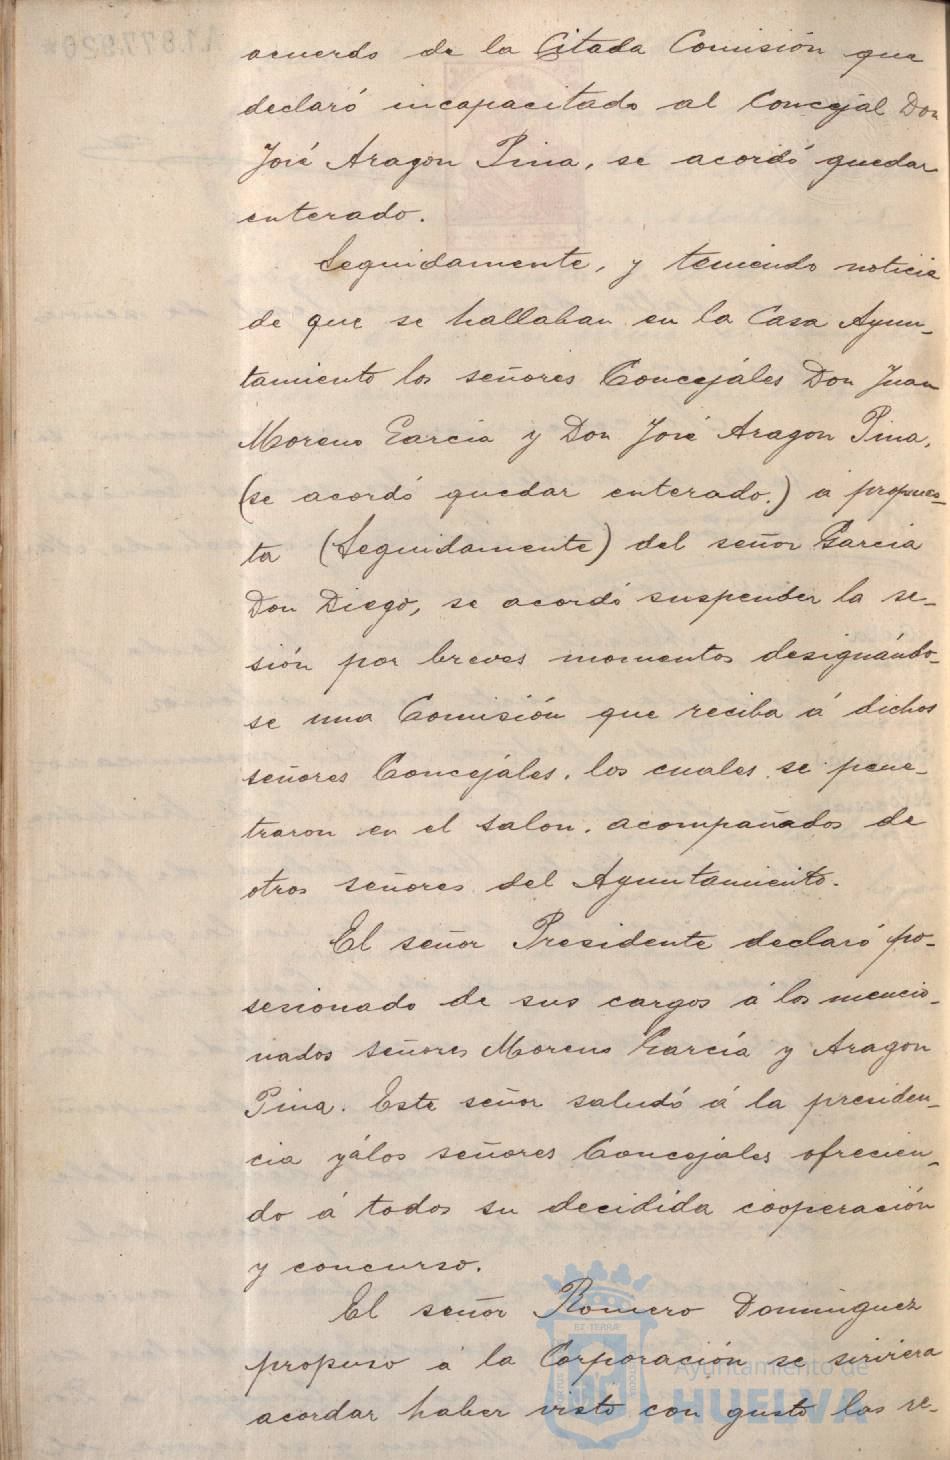 acuerdo de la Citada Comisión que
declaró incapacitado al Concejal Don
José Aragon Pina, se acordó quedar
enterado.
Seguidamente, y teniendo noticia
de que se hallaban en la Casa Ayun-
tamiento los señores Concejáles Don Juan
Moreno Garcia y Don José Aragon Pina,
(se acordó quedar enterado.) a propues-
ta (Seguidamente) del señor Garcia
Don Diego, se acordó suspender la se-
sión por breves momentos designándo-
se una Comisión que reciba á dichos
señores Concejáles, los cuales se pene-
traron en el salon, acompañados de
otros señores del Ayuntamiento.
El señor Presidente declaró po-
sesionado de sus cargos á los mencio-
nados señores Moreno García y Aragon
Pina. Este señor saludó á la presiden-
cia yálos señores Concejáles ofrecien-
do á todos su decidida cooperación
y concurso.
El señor Romero Dominguez
propuso á la Corporación se sirviera
acordar haber visto con gusto las re-
ET TERRÆ
Ayuntamiento de
HUELVA